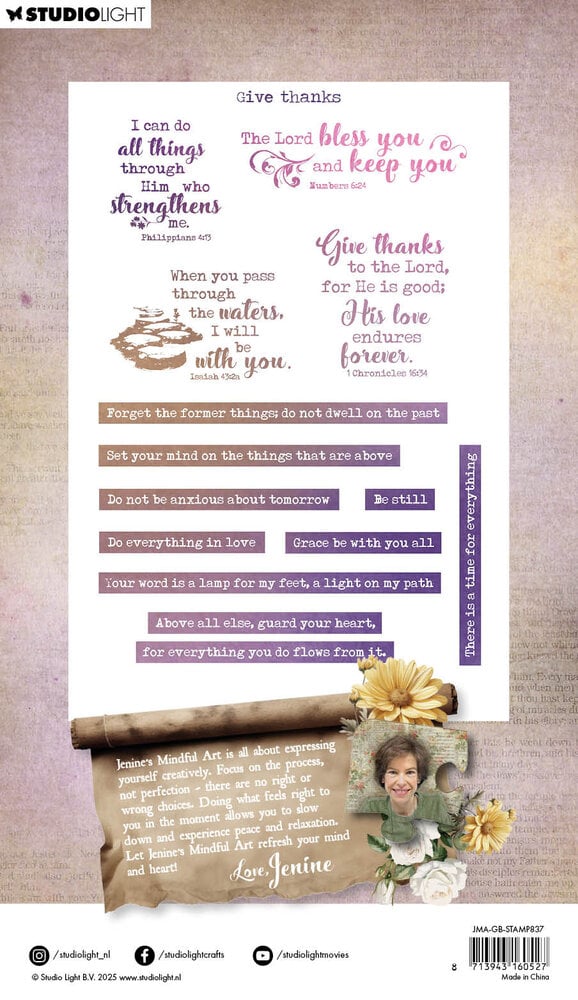 STUDIOLIGHT
Give thanks
I can do
all things
through
Him who
strengthens
me.
Philippians 4:13
The Lord bless you
and keep you
Numbers 6:24
Give thanks
to the Lord,
for He is good;
His love
endures
forever.
1 Chronicles 16:34
When you pass
through
the waters,
I will
be
with you.
Isaiah 43:2a
Forget the former things; do not dwell on the past
Set your mind on the things that are above
Do not be anxious about tomorrow
Be still
Do everything in love
Grace be with you all
Your word is a lamp for my feet, a light on my path
Above all else, guard your heart,
for everything you do flows from it.
There is a time for everything
Jenine's Mindful Art is all about expressing
yourself creatively. Focus on the process,
not perfection - there are no right or
wrong choices. Doing what feels right to
you in the moment allows you to slow
down and experience peace and relaxation.
Let Jenine's Mindful Art refresh your mind
and heart!
Love, Jenine
/studiolight_nl
/studiolightcrafts
/studiolightmovies
© Studio Light B.V. 2025 www.studiolight.nl
JMA-GB-STAMP837
8 713943 160527
Made in China